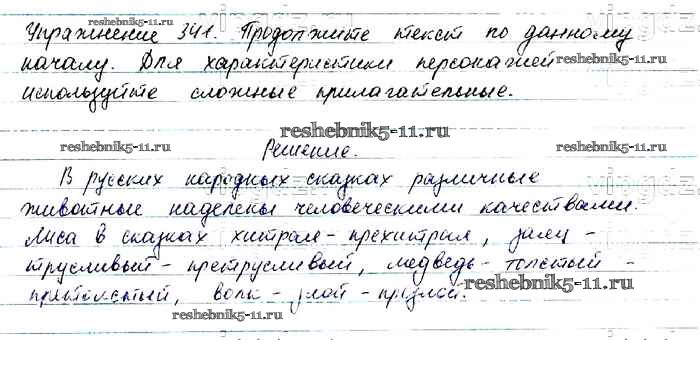 Упражнение 341. Продолжите текст по данному
началу. Для характеристики персонажей
используйте сложные прилагательные.
Решение.
В русских народных сказках различные
животные наделены человеческими качествами.
Лиса в сказках хитрая-прехитрая, заяц -
трусливый-претрусливый, медведь-толстый -
претолстый, волк-злой-презлой.
reshebnik5-11.ru
reshebnik5-11.ru
reshebnik5-11.ru
reshebnik5-11.ru
reshebnik5-11.ru
reshebnik5-11.ru
reshebnik5-11.ru